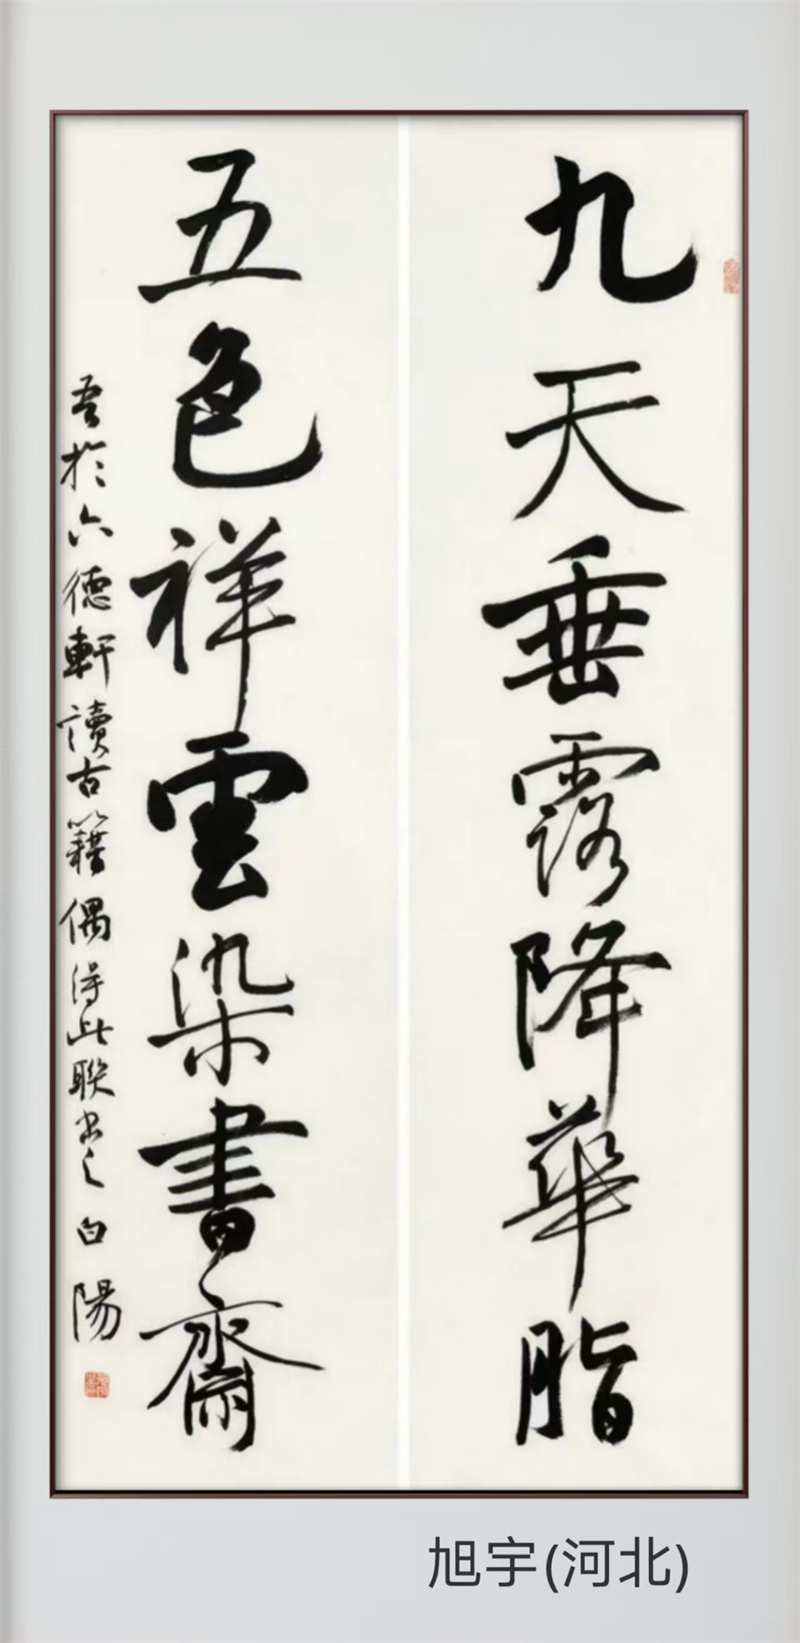 九天垂露降華脂
五色祥雲染書齋
吾於六德軒讀古籍偶得此聯書之 白陽
旭宇(河北)